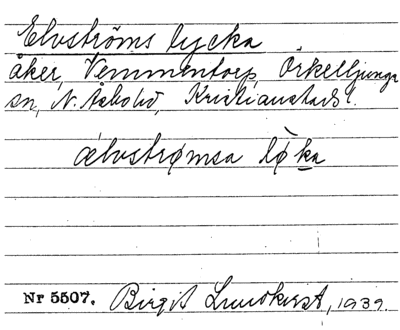 Elvströms lycka
åker, Vemmentorp, Örkelljunga
sn, N. Åsbohd, Kristianstads l.
ælvstrømsa løka
Nr 5507. Birgit Lundkvist, 1939.